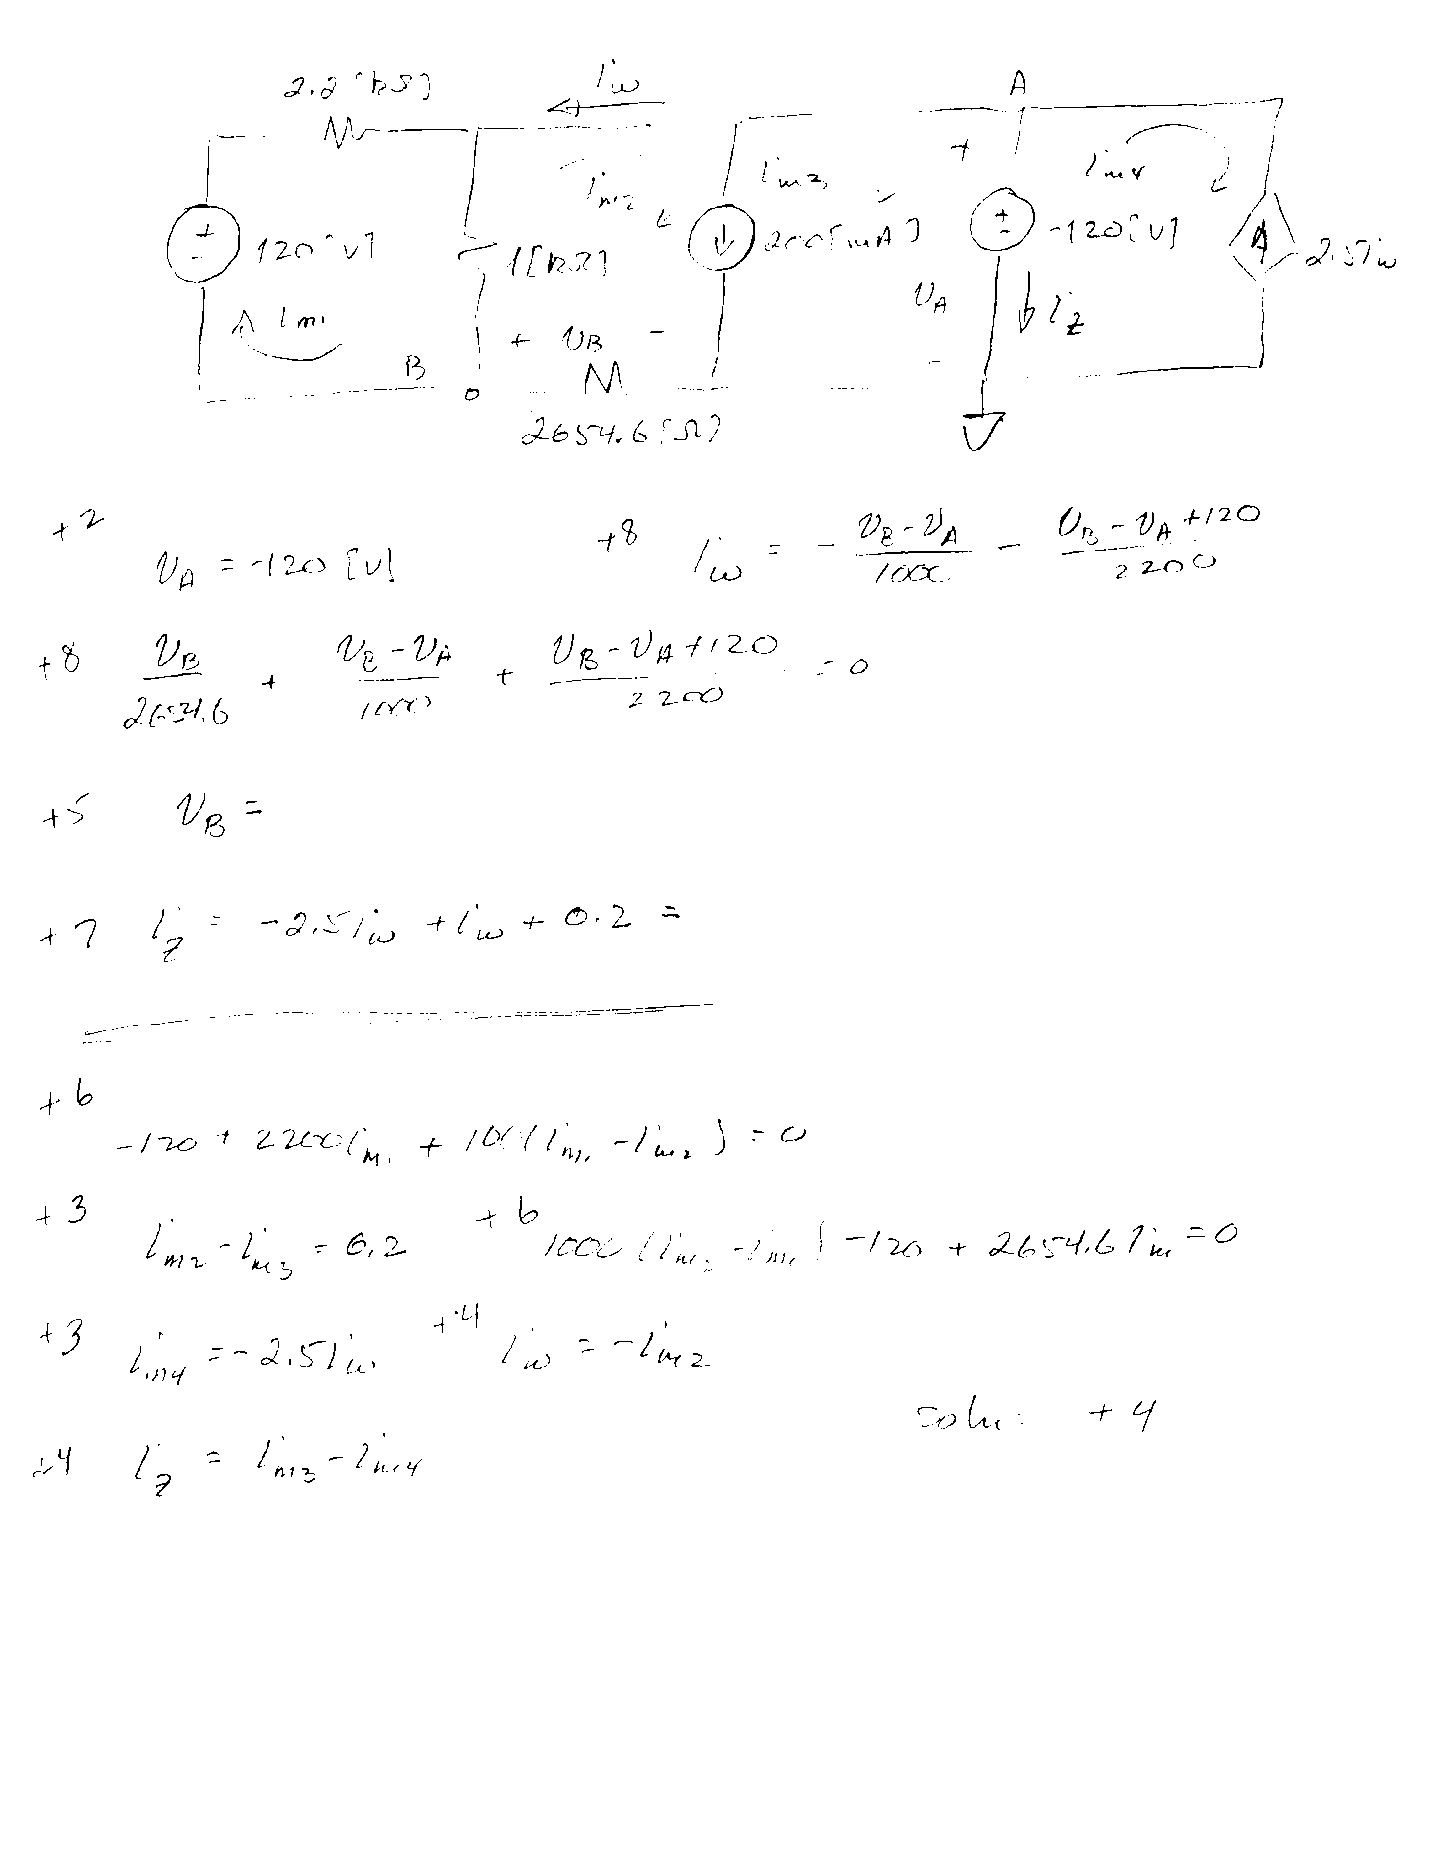 2.2[kΩ] i_w A
+ i_m2 i_m3 i_m4
+ - 120[V] 1[kΩ] 200[mA] + - -120[V] 2.5i_w
i_m1 + v_B - v_A i_z -
B
2654.6[Ω]
+2 v_A = -120[V] +8 i_w = - (v_B - v_A)/1000 - (v_B - v_A + 120)/2200
+8 v_B/2654.6 + (v_B - v_A)/1000 + (v_B - v_A + 120)/2200 = 0
+5 v_B =
+7 i_z = -2.5i_w + i_w + 0.2 =
+6
-120 + 2200i_m1 + 1000(i_m1 - i_m2) = 0
+3 i_m2 - i_m3 = 0.2 +6 1000(i_m2 - i_m1) - 120 + 2654.6i_m = 0
+3 i_m4 = -2.5i_w +4 i_w = -i_m2
soln: +4
+4 i_z = i_m3 - i_m4